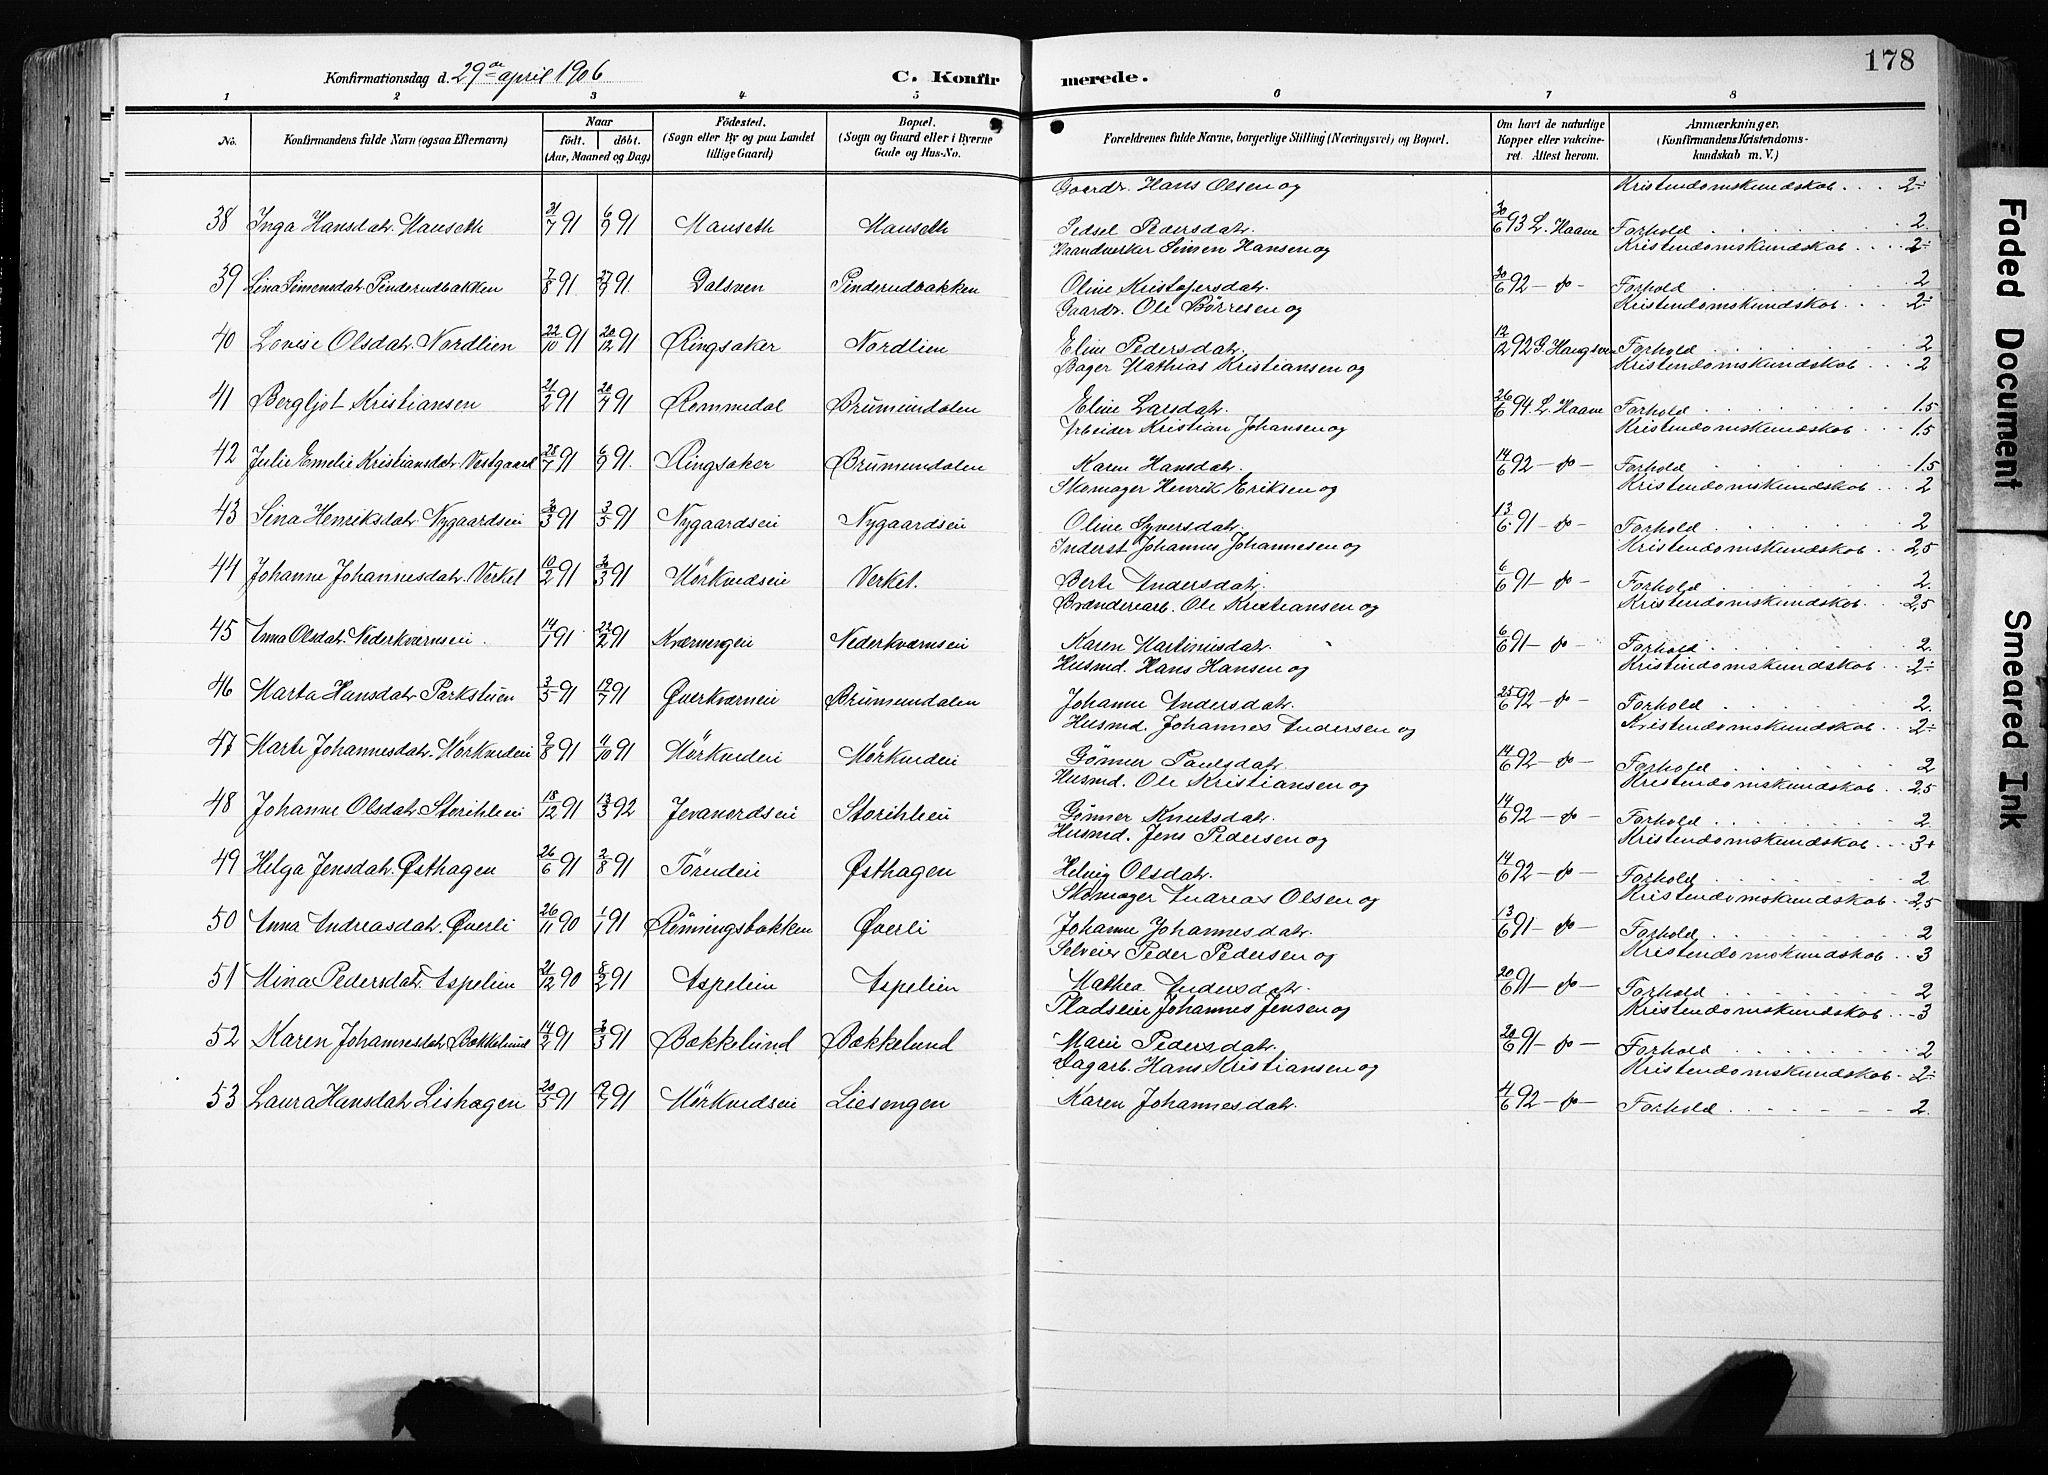 178
Konfirmationsdag d. 29de april 1906
C. Konfirmerede.
1 2 3 4 5 6 7 8
No. Konfirmandens fulde Navn (ogsaa Efternavn) Naar født. døbt. (Aar, Maaned og Dag) Fødested. (Sogn eller By og paa Landet tillige Gaard) Bopæl. (Sogn og Gaard eller i Byerne Gade og Hus-No. Forældrenes fulde Navne, borgerlige Stilling (Næringsvei) og Bopæl. Om havt de naturlige Kopper eller vakcineret. Attest herom. Anmærkninger. (Konfirmandens Kristendomskundskab m. V.)
Gaardr. Hans Olsen og Kristendomskundskab . . . 2÷
38 Inga Hansdatr. Mauseth 31/7 91 6/9 91 Mauseth Mauseth Sidsel Pedersdatr. 30/6 93 L. Haave Forhold . . . 2
Haandverker Simen Hansen og Kristendomskundskab . . . 2÷
39 Lina Simensdatr. Pinderudbakken 7/8 91 27/9 91. Dalsven Pinderudbakken Oline Kristofersdatr. 30/6 92 - do - Forhold . . . 2
Gaardr. Ole Børresen og Kristendomskundskab . . . 2÷
40 Lovise Olsdatr. Nordlien 22/10 91 20/12 91 Ringsaker Nordlien Eline Pedersdatr. 12/12 92 Forhold . . . 2
Bager Mathias Kristiansen og Kristendomskundskab . . . 2
41 Bergljot Kristiansen 21/2 91 20/4 91 Rommedal Brumundalen Eline Larsdatr. 26/6 94. L. Haave Forhold . . . 1.5
Arbeider Kristian Johansen og Kristendomskundskab . . . 1.5
42 Julie Emelie Kristiansdatr. Vestgaard 28/7 91 6/9 91. Ringsaker Brumundalen Karen Hansdatr. 14/6 92 - do - Forhold . . . 1.5
Skomager Henrik Eriksen og Kristendomskundskab . . . 2
43 Sina Henriksdatr. Nygaardseie 30/3 91 3/5 91 Nygaardseie Nygaardseie Oline Syversdatr. 13/6 91 - do - Forhold . . . 2
Inderst Johannes Johannesen og Kristendomskundskab . . 2,5
44 Johanne Johannesdatr. Verket 10/2 91 30/3 91 Mörkvedseie Verket. Berte Andersdatr. 6/6 91 - do - Forhold . . . 2.
Brænderiarb. Ole Kristiansen og Kristendomskundskab . . 2,5
45 Anna Olsdatr. Nederkværnseie. 14/1 91 22/2 91 Kværnengen Nederkværnseie Karen Martinusdatr. 6/6 91 - do - Forhold . . . 2.
Husmd. Hans Hansen og Kristendomskundskab . . 2÷
46 Marta Hansdatr. Parksteien 3/5 91 19/7 91 Øverkværneie Brumundalen Johanne Andersdatr. 25/6 92 - do - Forhold . . . 2.
Husmd. Johannes Andersen og Kristendomskundskab . . 2÷
47 Marte Johannesdatr. Mörkvedeie 9/8 91 4/10 91 Mörkvedeie Mörkvedeie Gönner Paulsdatr. 14/6 92 - do - Forhold . . . 2
Husmd. Ole Kristiansen og Kristendomskundskab . . 2,5
48 Johanne Olsdatr. Storihleie 18/12 91 13/3 92 Jevanordseie Storihleie Gönner Knutsdatr. 14/6 92 - do - Forhold . . . 2.
Husmd. Jens Pedersen og Kristendomskundskab . . 3+
49 Helga Jensdatr. Østhagen 26/6 91 2/8 91 Törudeie Østhagen Helvig Olsdatr. 14/6 92 - do - Forhold . . . 2
Skomager Andreas Olsen og Kristendomskundskab . . 2,5
50 Anna Andreasdatr. Øverli 26/11 90 1/1 91 Rönningsbakken Øverli Johanne Johannesdatr. 13/6 91 - do - Forhold . . . 2
Selveier Peder Pedersen og Kristendomskundskab . . 3
51 Mina Pedersdatr. Aspelien 21/12 90 8/2 91 Aspelien Aspelien Mathea Andersdatr. 20/6 91 - do - Forhold . . . 2
Pladseier Johannes Jensen og Kristendomskundskab . . 3
52 Karen Johannesdatr. Bækkelund 14/2 91 30/3 91 Bækkelund Bækkelund Marie Pedersdatr. 20/6 91 - do - Forhold . . . 2
Dagarb. Hans Kristiansen og Kristendomskundskab . . 2÷
53 Laura Hansdatr. Lishagen 20/5 91 19/7 91 Mörkvedseie Liesengen Karen Johannesdatr. 4/6 92 - do - Forhold . . . 2.
Faded Document
Smeared Ink